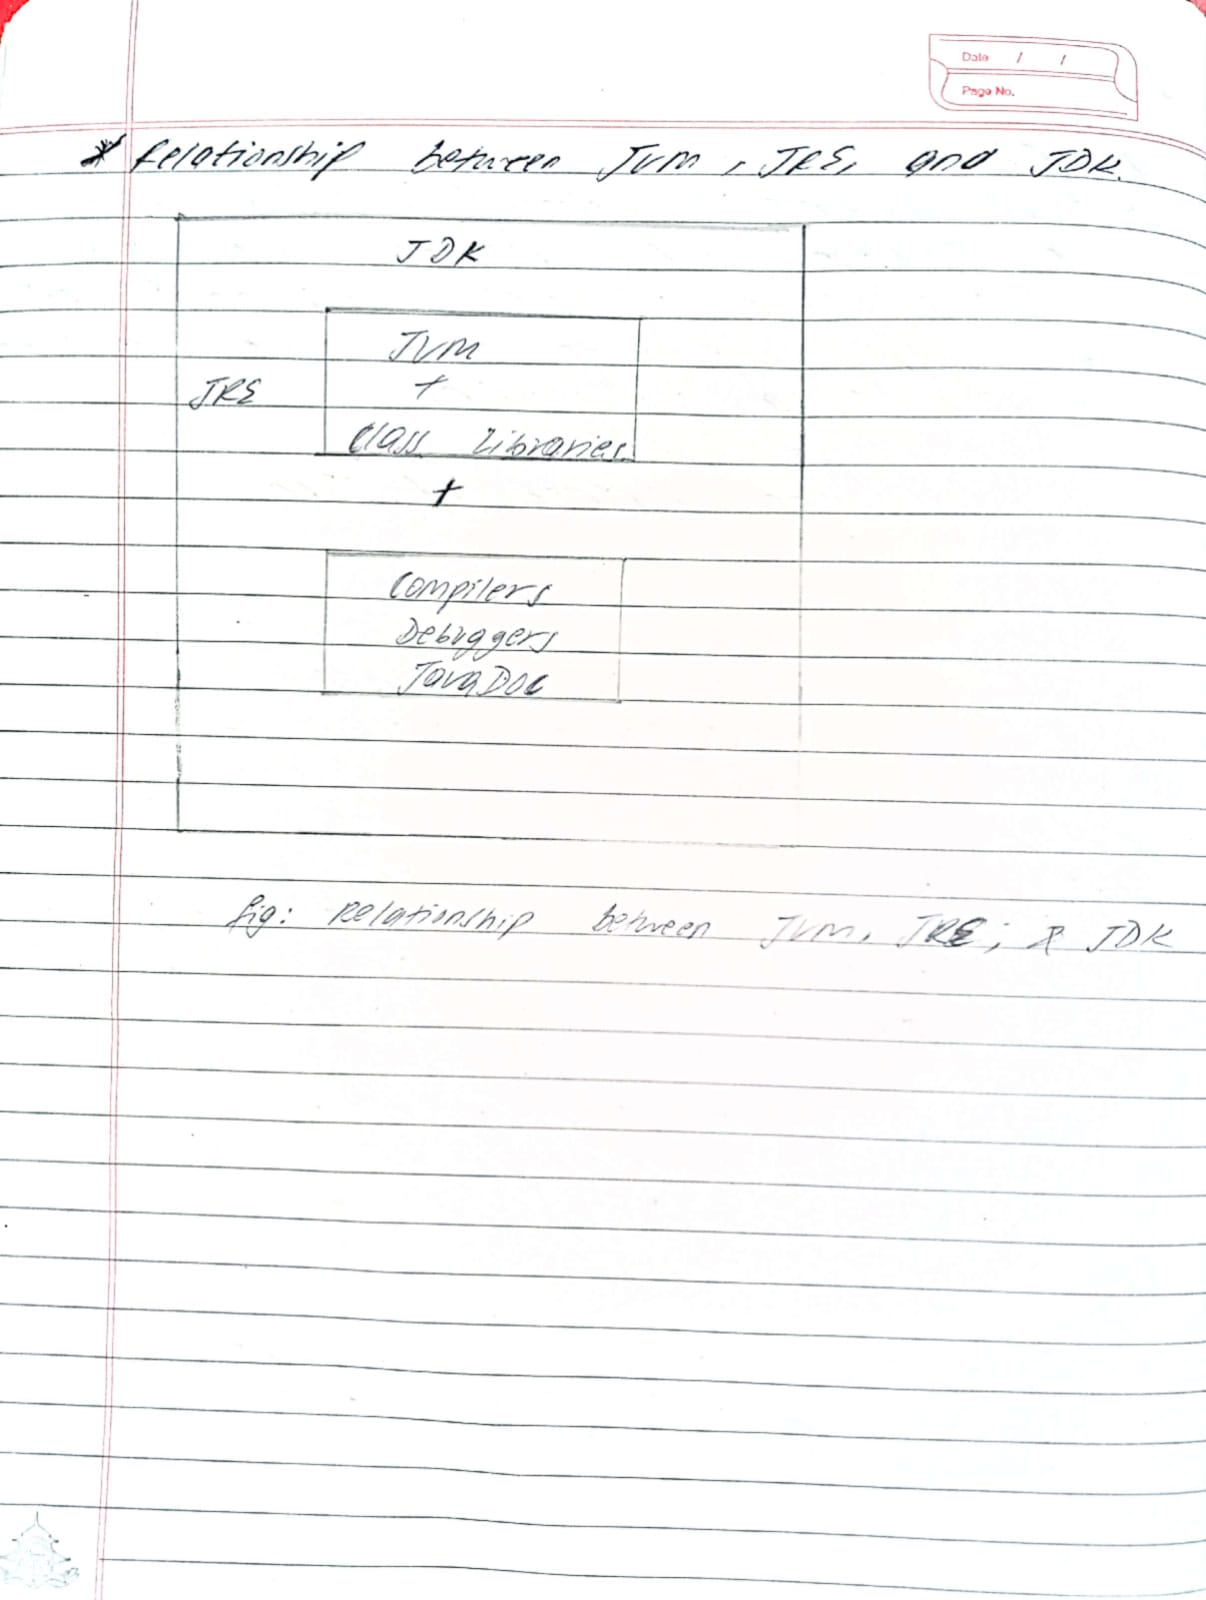 Date / /
Page No.
* Relationship between JVM, JRE, and JDK.
JDK
JVM
JRE +
Class Libraries
+
Compilers
Debuggers
JavaDoc
fig: Relationship between JVM, JRE, & JDK